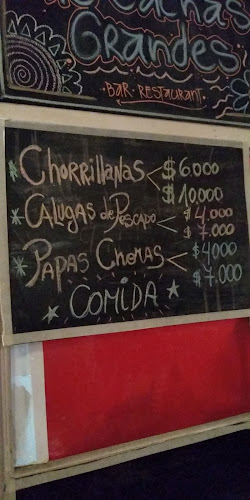 Grandes
BAR • RESTAURANT •
* CHORRILLANAS < $6000
$10.000
* CALUGAS de PESCADO < $4.000
$7.000
* PAPAS CHEMAS < $4000
$7.000
COMIDA